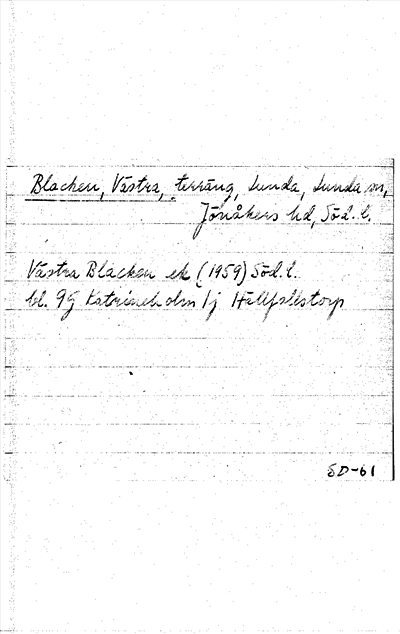 Blacken, Västra, terräng, Lunda, Lunda sn,
Jönåkers hd, Söd. l.
Västra Blacken ek (1959) Söd. l.
bl. 9G Katrineholm 1j Hällpilstorp
SD-61